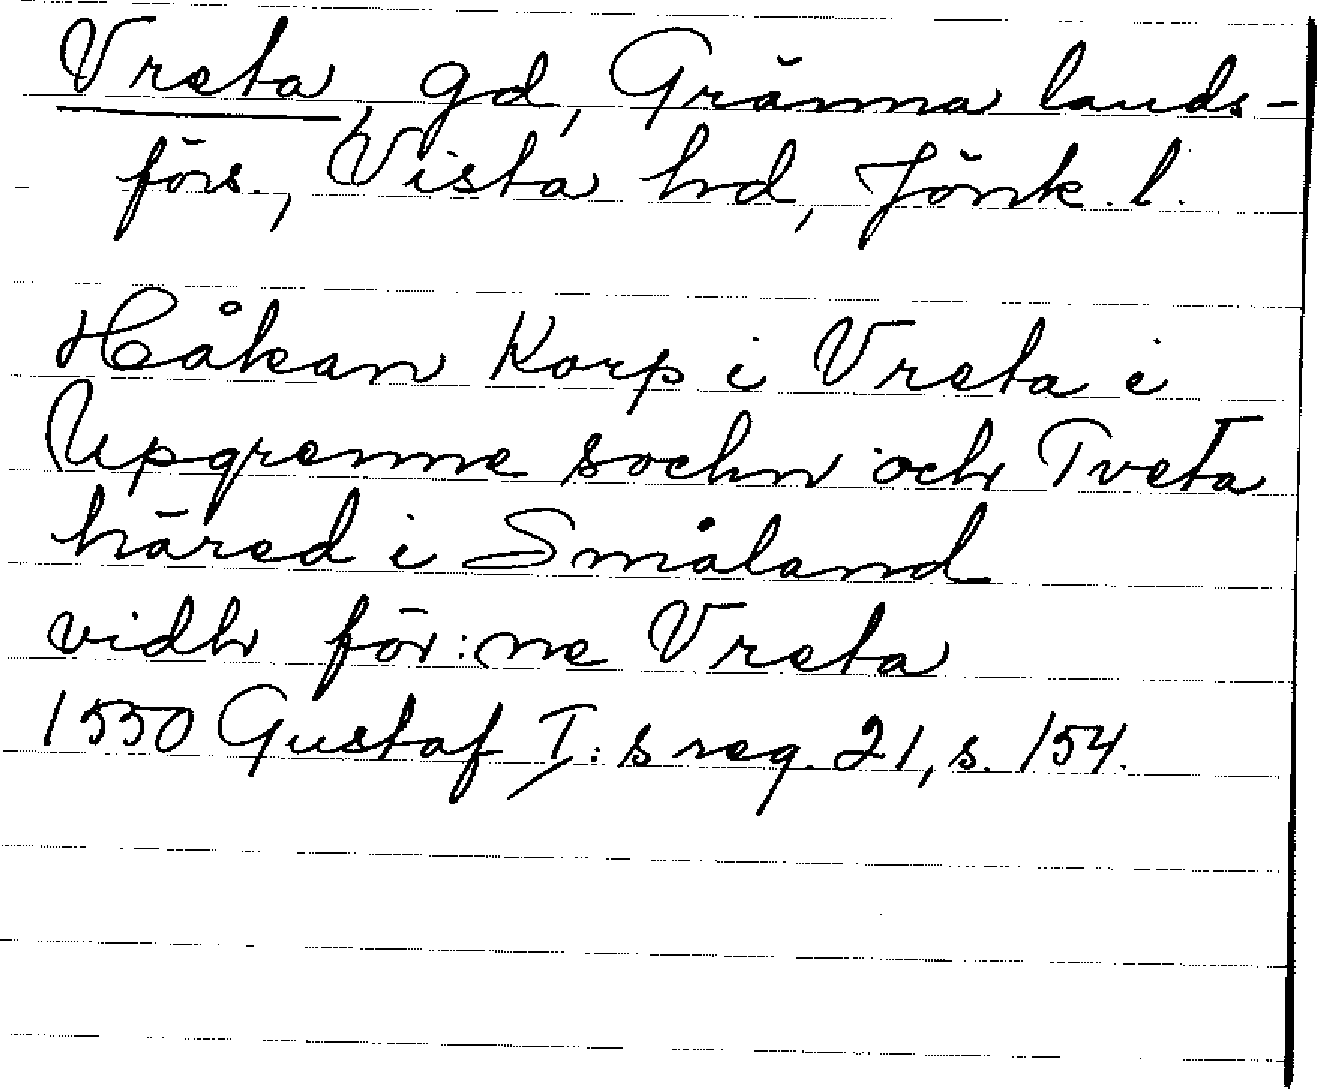 Vreta, gd, Gränna lands-
förs., Vista hd, Jönk. l.
Håkan Korp i Vreta i
Upgrenne sochn och Tveta
häred i Småland
vidh för:ne Vreta
1550 Gustaf I:s reg. 21, s. 154.